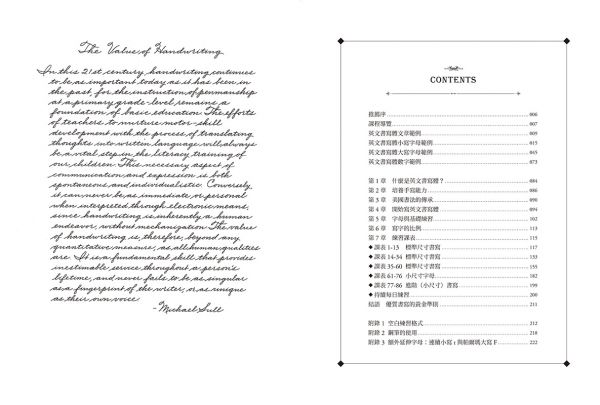 The Value of Handwriting
In this 21st century handwriting continues
to be as important today as it has been in
the past, for the instruction of penmanship
at a primary grade-level remains a
foundation of basic education. The efforts
of teachers to nurture motor-skill
development with the process of translating
thoughts into written language will always
be a vital step in the literacy training of
our children. This necessary aspect of
communication and expression is both
spontaneous and individualistic. Conversely,
it can never be as immediate or personal
when interpreted through electronic means,
since handwriting is inherently a human
endeavor, without mechanization. The value
of handwriting is, therefore, beyond any
quantitative measure, as all human qualities
are. It is a fundamental skill that provides
inestimable service throughout a person's
lifetime, and never fails to be as singular
as a fingerprint of the writer, or as unique
as their own voice
- Michael Sull
CONTENTS
推薦序 006
課程導覽 007
英文書寫體文章範例 009
英文書寫體小寫字母範例 015
英文書寫體大寫字母範例 045
英文書寫體數字範例 073
第 1 章 什麼是英文書寫體？ 084
第 2 章 培養手寫能力 086
第 3 章 美國書法的傳承 090
第 4 章 開始寫英文書寫體 094
第 5 章 字母與基礎練習 102
第 6 章 寫字的比例 113
第 7 章 練習課表 115
◆課表 1-13 標準尺寸書寫 117
◆課表 14-34 標準尺寸書寫 133
◆課表 35-60 標準尺寸書寫 155
◆課表 61-76 小尺寸字母 182
◆課表 77-86 進階（小尺寸）書寫 199
◆持續每日練習 200
結語 優質書寫的黃金準則 211
附錄 1 空白練習格式 212
附錄 2 鋼筆的使用 218
附錄 3 額外延伸字母：連續小寫 t 與帕爾瑪大寫 F 222